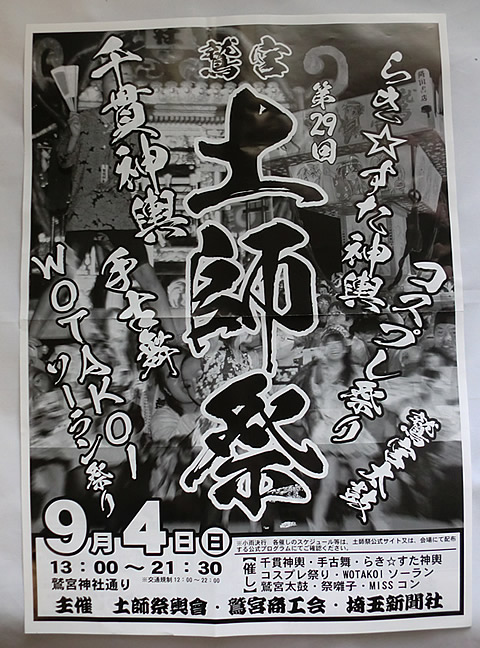 鷲宮
第29回
土師祭
らき☆すた神輿
コスプレ祭り
鷲宮太鼓
千貫神輿
手古舞
WOTAKOI
ソーラン祭り
9月4日日
13：00～21：30
鷲宮神社通り ※交通規制12：00～22：00
※小雨決行 各催しのスケジュール等は、土師祭公式サイト又は、会場にて配布
する公式プログラムにてご確認ください。
【催し】
千貫神輿・手古舞・らき☆すた神輿
コスプレ祭り・WOTAKOIソーラン
鷲宮太鼓・祭囃子・MISSコン
主催 土師祭輿會・鷲宮商工会・埼玉新聞社